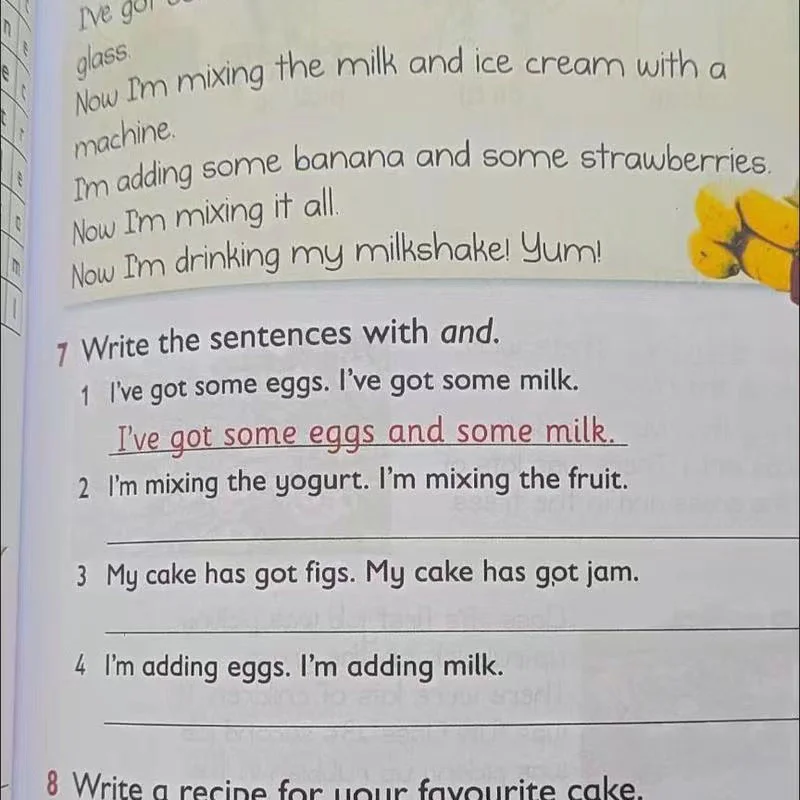 I've got
glass.
Now I'm mixing the milk and ice cream with a
machine.
I'm adding some banana and some strawberries.
Now I'm mixing it all.
Now I'm drinking my milkshake! Yum!
7 Write the sentences with and.
1 I've got some eggs. I've got some milk.
I've got some eggs and some milk.
2 I'm mixing the yogurt. I'm mixing the fruit.
3 My cake has got figs. My cake has got jam.
4 I'm adding eggs. I'm adding milk.
8 Write a recipe for your favourite cake.